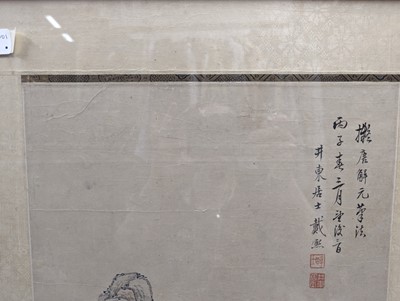 擬唐解元筆法
丙子春三月望後首
井東居士戴熙